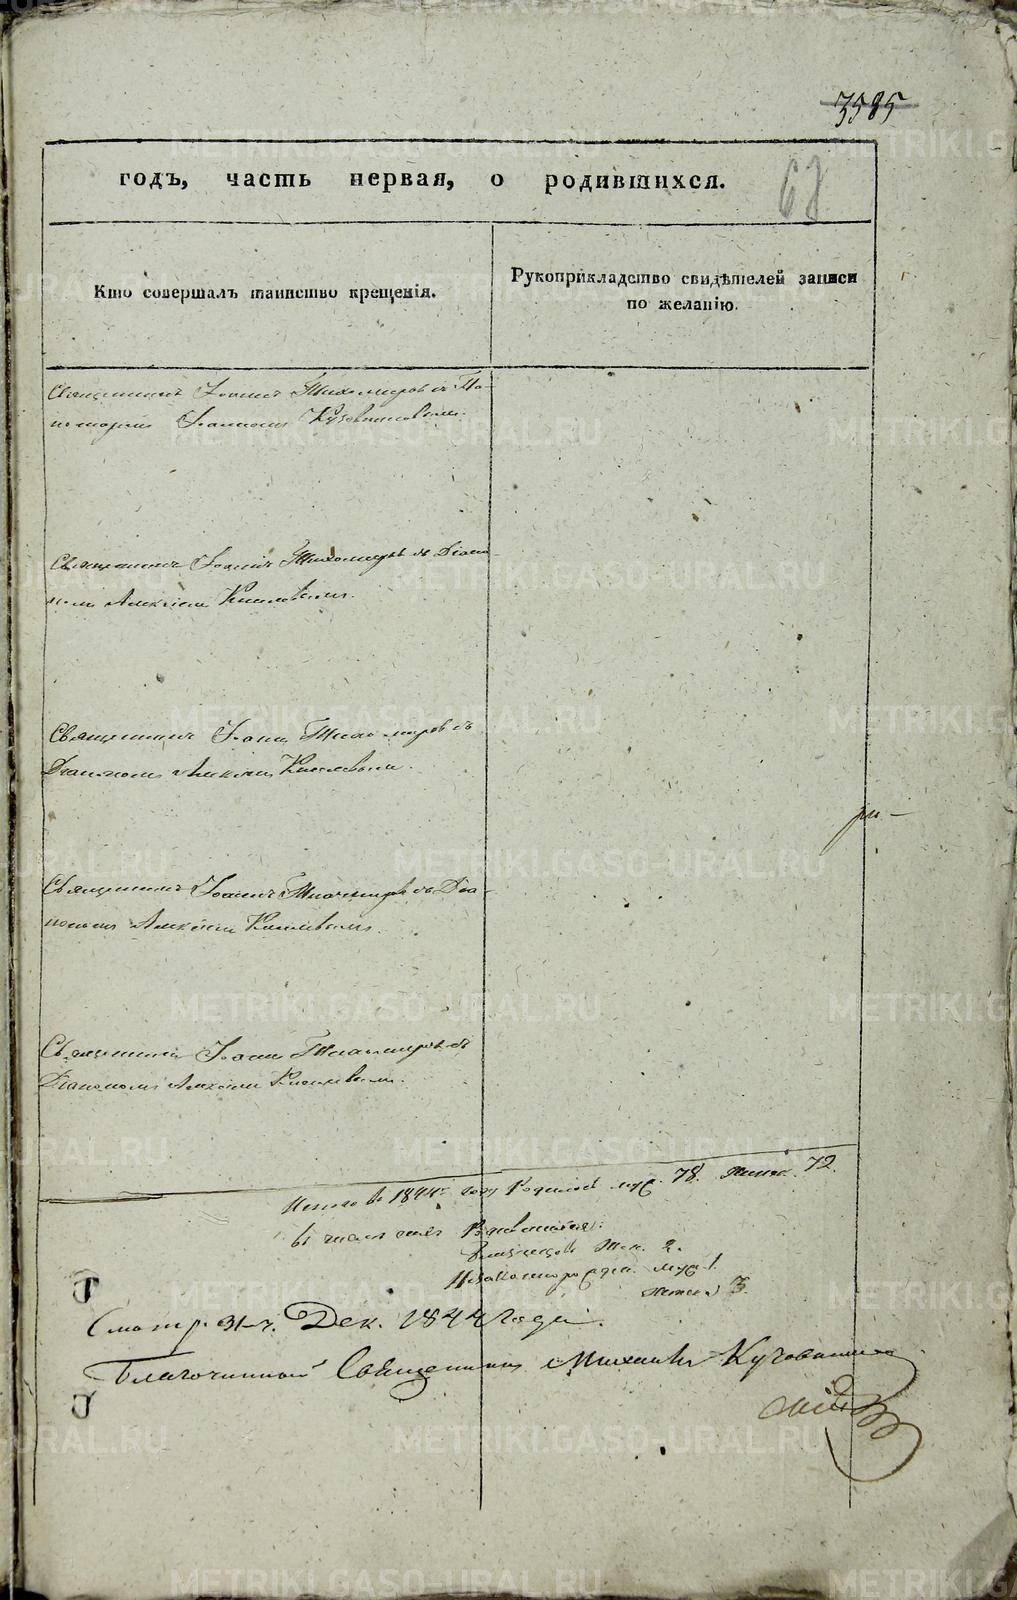 3585
годъ, часть первая, о родившихся.
68
Кто совершалъ таинство крещенія.
Рукоприкладство свидѣтелей записи
по желанію.
Священникъ Іоаннъ Тихомировъ съ По-
номаремъ Іоанномъ
Священникъ Іоаннъ Тихомировъ съ Діако-
номъ Алексіемъ Киселевымъ.
Священникъ Іоаннъ Тихомировъ съ
Діакономъ Алексіемъ Киселевымъ.
Священникъ Іоаннъ Тихомировъ съ Діа-
кономъ Алексіемъ Киселевымъ.
Священникъ Іоаннъ Тихомировъ съ
Діакономъ Алексіемъ Киселевымъ.
Итого въ 1844 году Родилось муж. 78. женск. 72.
въ числѣ сихъ
Близнецовъ жен. 2.
Незаконнорожден. муж. 1.
женска 3.
Смотр. 31-г. Дек. 1844 года.
Благочинной Священникъ Михаилъ
METRIKI.GASO-URAL.RU